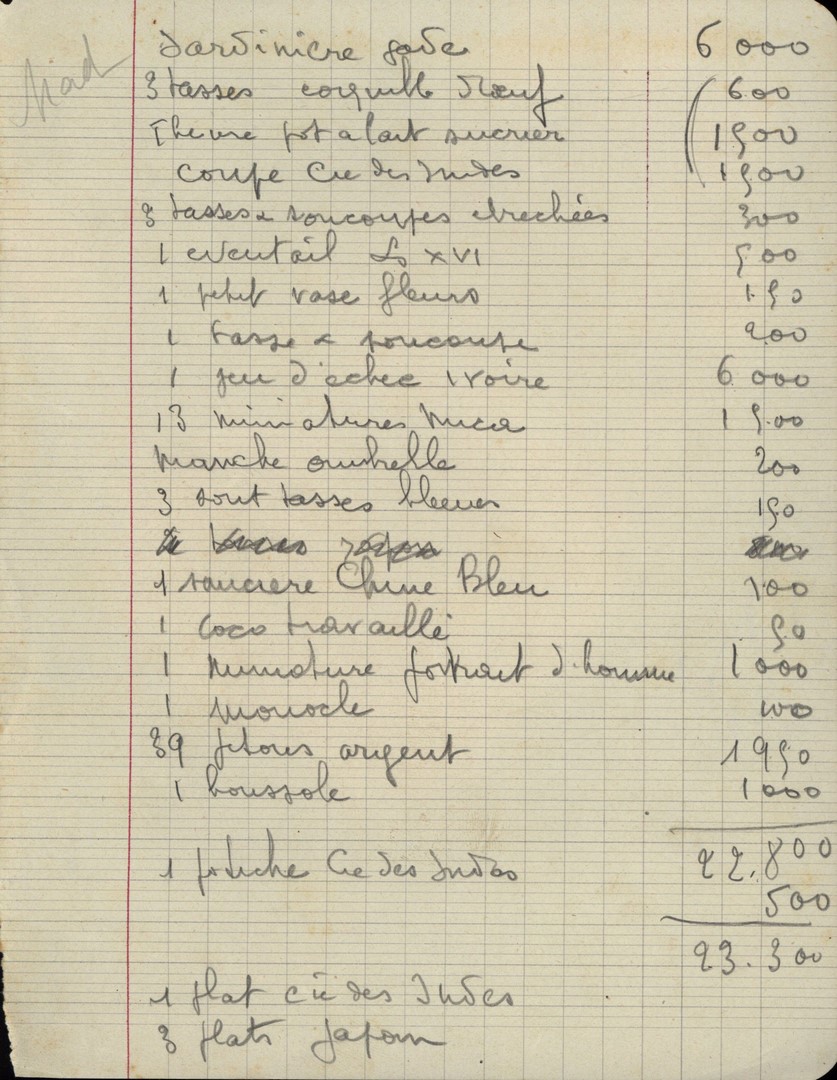 Mad
Jardiniere jade 6 000
3 tasses coquille d'œuf 600
Theiere pot a lait sucrier 1500
coupe Cie des Indes 1500
3 tasses & soucoupes ebrechées 300
1 eventail Ls XVI 500
1 petit vase fleurs 150
1 tasse & soucoupe 200
1 jeu d'echec ivoire 6 000
13 miniatures mica 1500
Manche ombrelle 200
3 sout tasses bleues 150
1 sauciere Chine Bleu 100
1 Coco travaillé 50
1 miniature portrait d'homme 1000
1 monocle 100
39 jetons argent 1950
1 boussole 1000
22.800
1 potiche Cie des Indes
500
23.300
1 plat cie des Indes
3 plats Japon